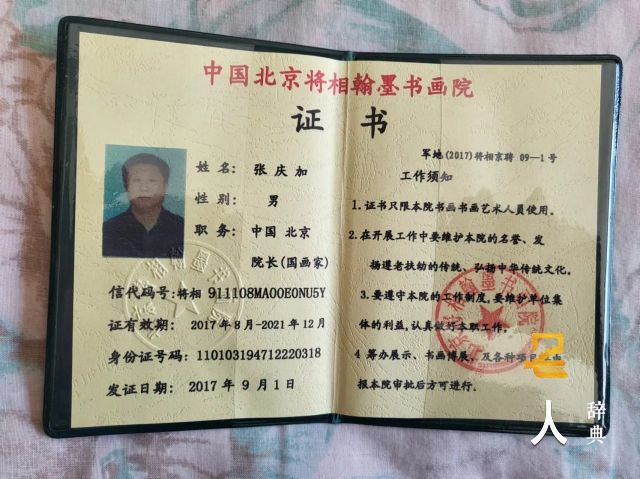 中国北京将相翰墨书画院
证 书
姓名: 张庆加
性别: 男
职务: 中国 北京
院长(国画家)
信代码号:将相 911108MA00E0NU5Y
证有效期: 2017年8月-2021年12月
身份证号码: 110103194712220318
发证日期: 2017年9月1日
军地(2017)将相京聘 09—1号
工作须知
1. 证书只限本院书画书画艺术人员使用。
2. 在开展工作中要维护本院的名誉、发
扬遵老扶幼的传统、弘扬中华传统文化。
3. 要遵守本院的工作制度,要维护单位集
体的利益,认真做好本职工作。
4 筹办展示、书画博展、及各种项目
报本院审批后方可进行。
人 辞典